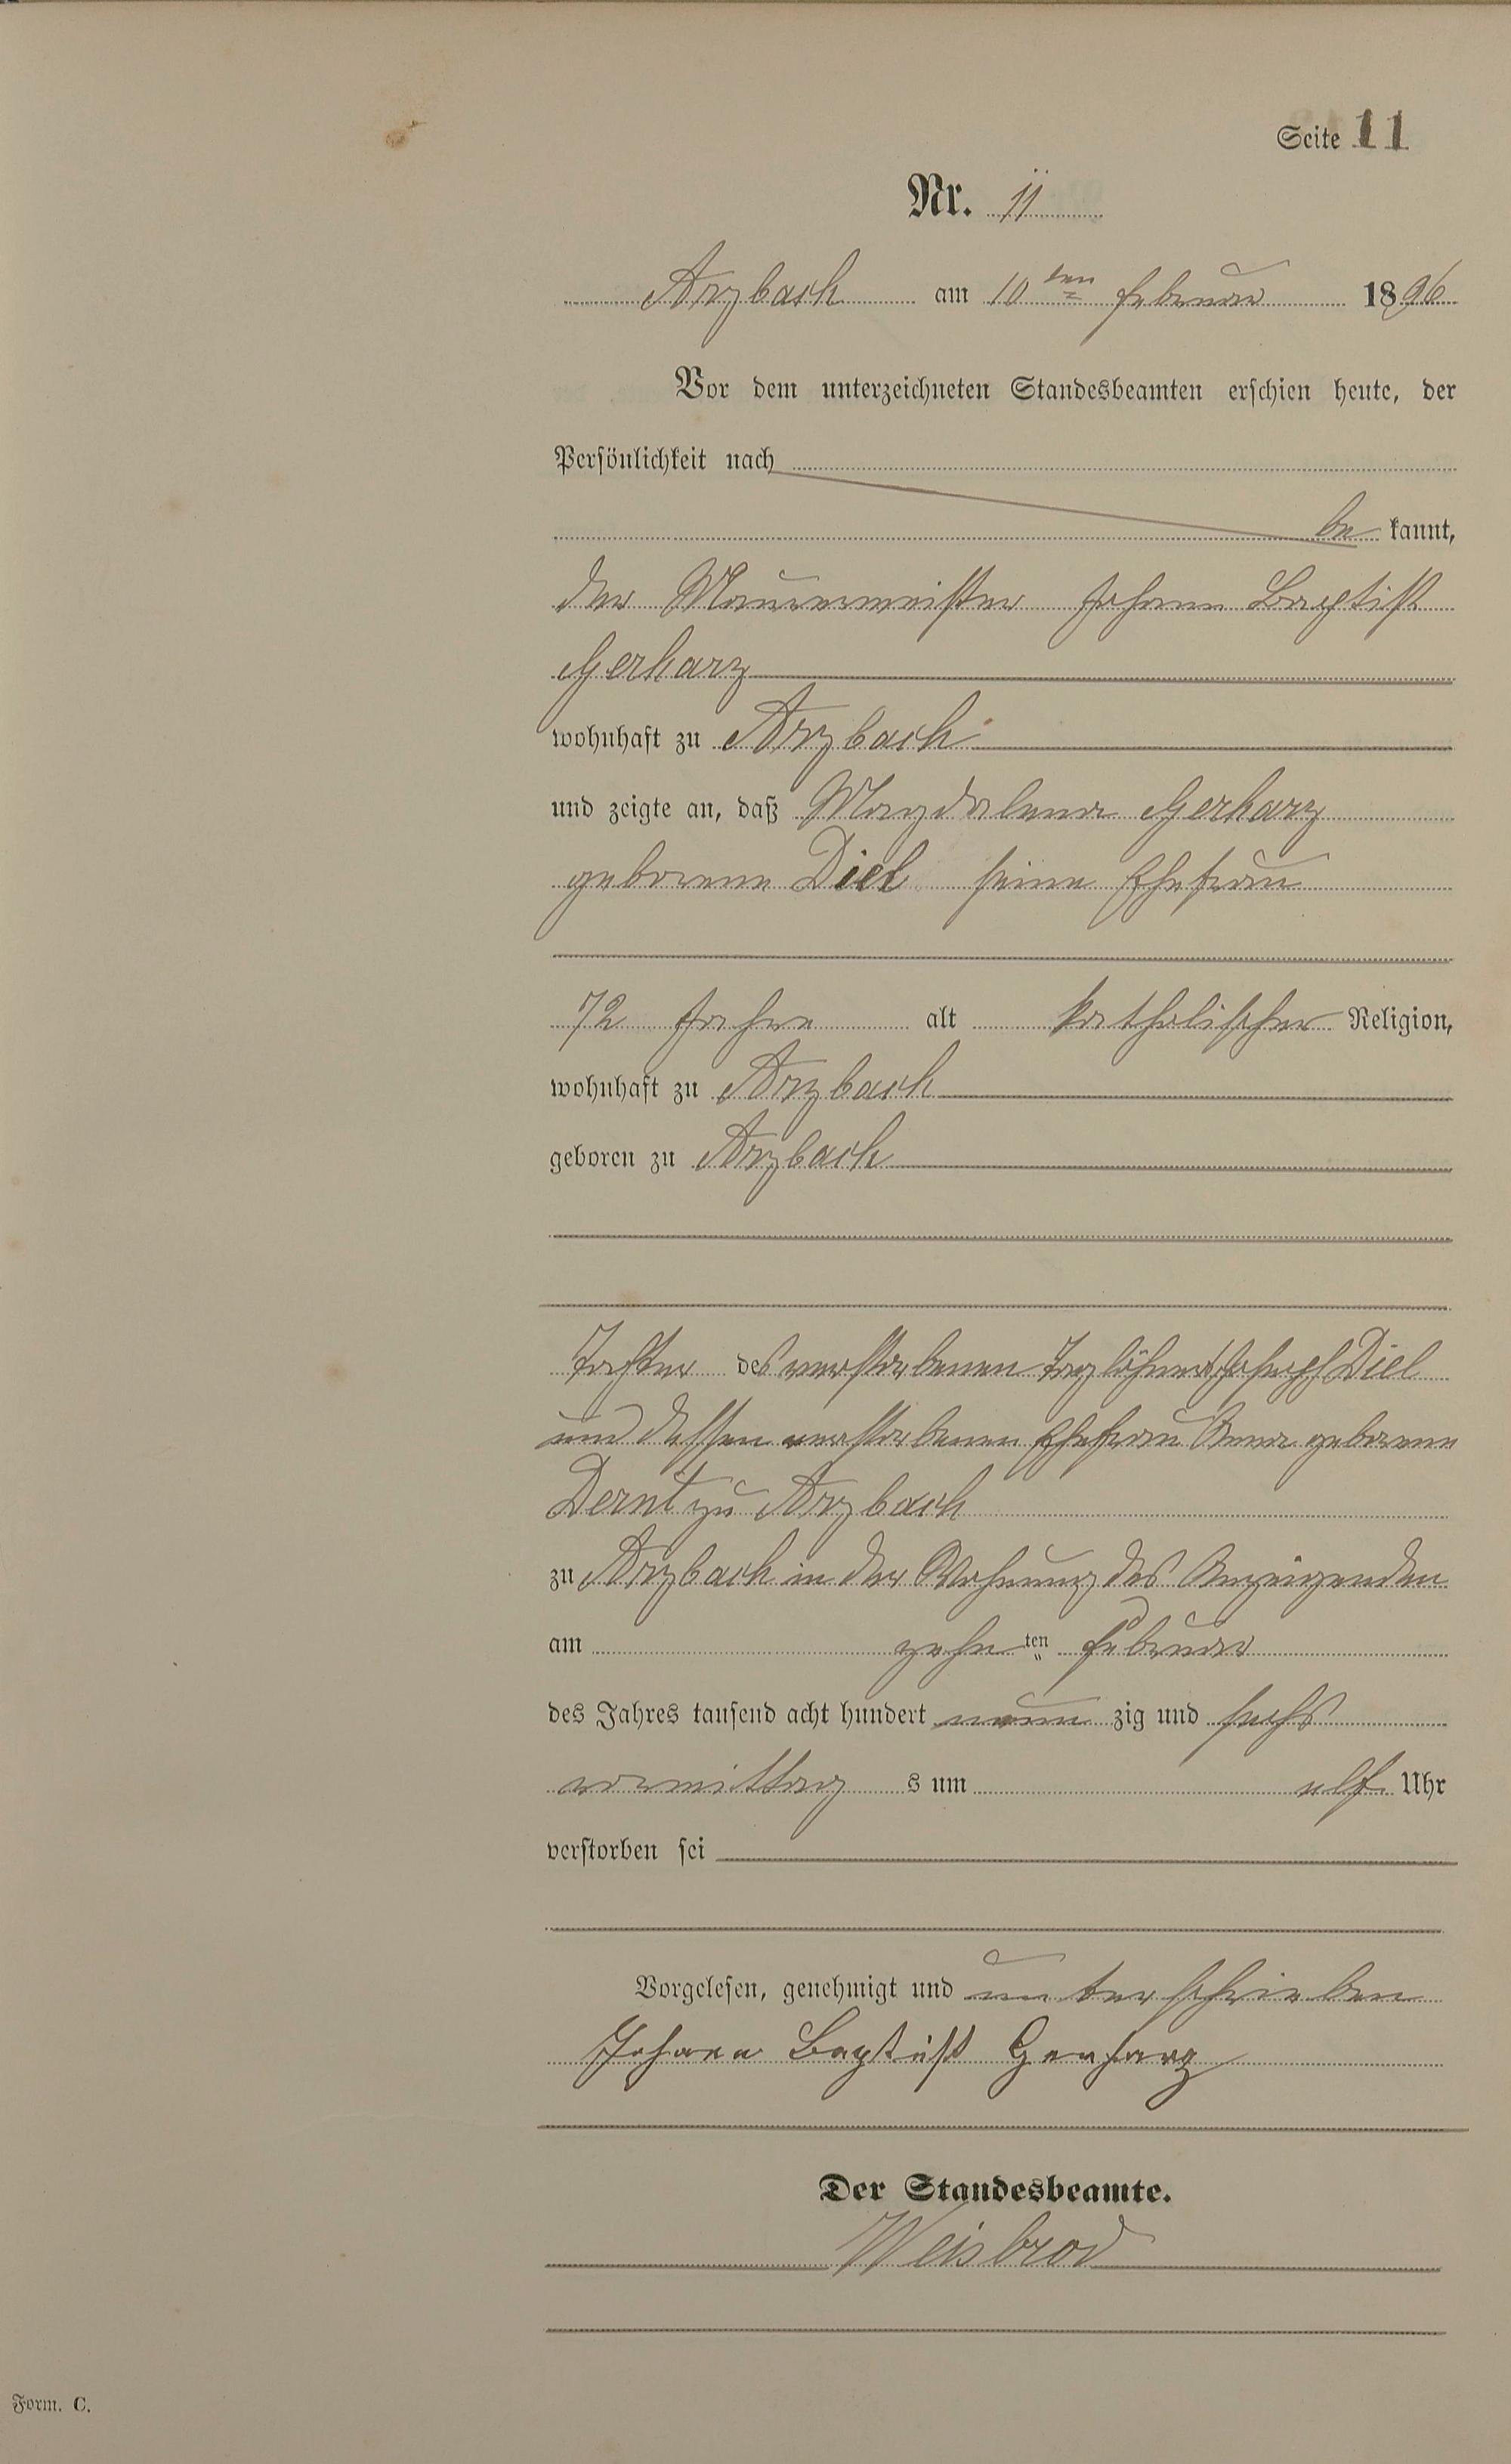 Seite 11
Nr. 11
Arzbach am 10ten Februar 1896
Vor dem unterzeichneten Standesbeamten erschien heute, der
Persönlichkeit nach
be kannt,
der Maurermeister Johann Baptist
Gerharz
wohnhaft zu Arzbach
und zeigte an, daß Magdalena Gerharz
geborene Diel seine Ehefrau
72 Jahre alt katholischer Religion,
wohnhaft zu Arzbach
geboren zu Arzbach
Tochter des verstorbenen Taglöhners Joseph Diel
und dessen verstorbenen Ehefrau Anna geborene
Dernt zu Arzbach
zu Arzbach in der Wohnung des Anzeigenden
am zehn ten Februar
des Jahres tausend acht hundert neun zig und sechs
vormittag s um elf Uhr
verstorben sei
Vorgelesen, genehmigt und unterschrieben
Johann Baptist Gerharz
Der Standesbeamte.
Weisbrod
Form. C.